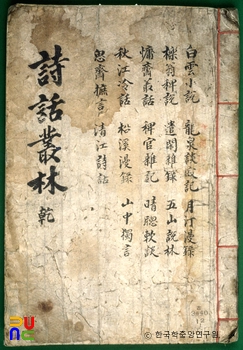 白雲小說 龍泉談寂記 月汀漫錄
櫟翁稗說 遣閑雜錄 五山說林
慵齋叢話 稗官雜記 晴牕軟談
秋江冷話 松溪漫錄 山中獨言
思齋摭言 清江詩話
詩話叢林 乾
ⓒ 한국학중앙연구원